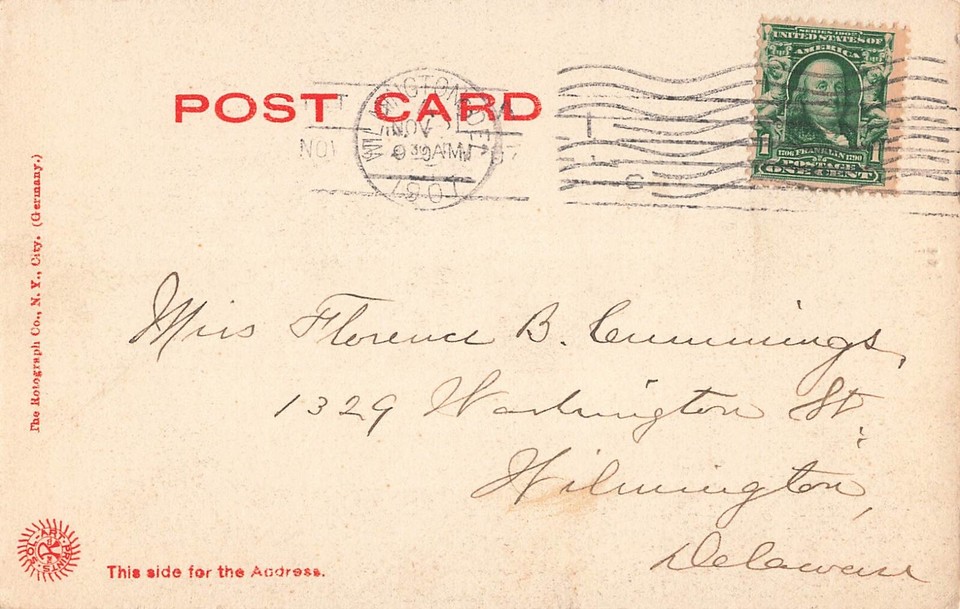 SERIES 1902
UNITED STATES OF
AMERICA
1 1
1706 FRANKLIN 1790
POSTAGE
ONE CENT
POST CARD
WILMINGTON, DEL.
NOV
9 30 AM
1907
NOV
The Rotograph Co., N. Y., City. (Germany.)
Miss Florence B. Cummings,
1329 Washington St.
Wilmington,
Delaware
SOL-ART-PRINTS
This side for the Address.